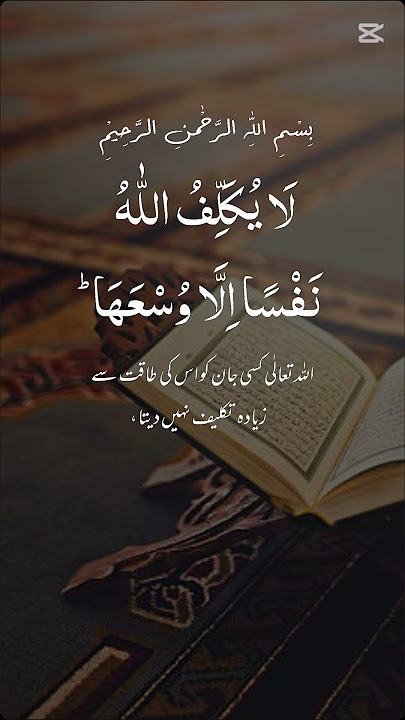 بِسْمِ اللهِ الرَّحْمٰنِ الرَّحِيْمِ
لَا يُكَلِّفُ اللّٰهُ
نَفْسًا اِلَّا وُسْعَهَا ؕ
اللہ تعالٰی کسی جان کو اس کی طاقت سے
زیادہ تکلیف نہیں دیتا،